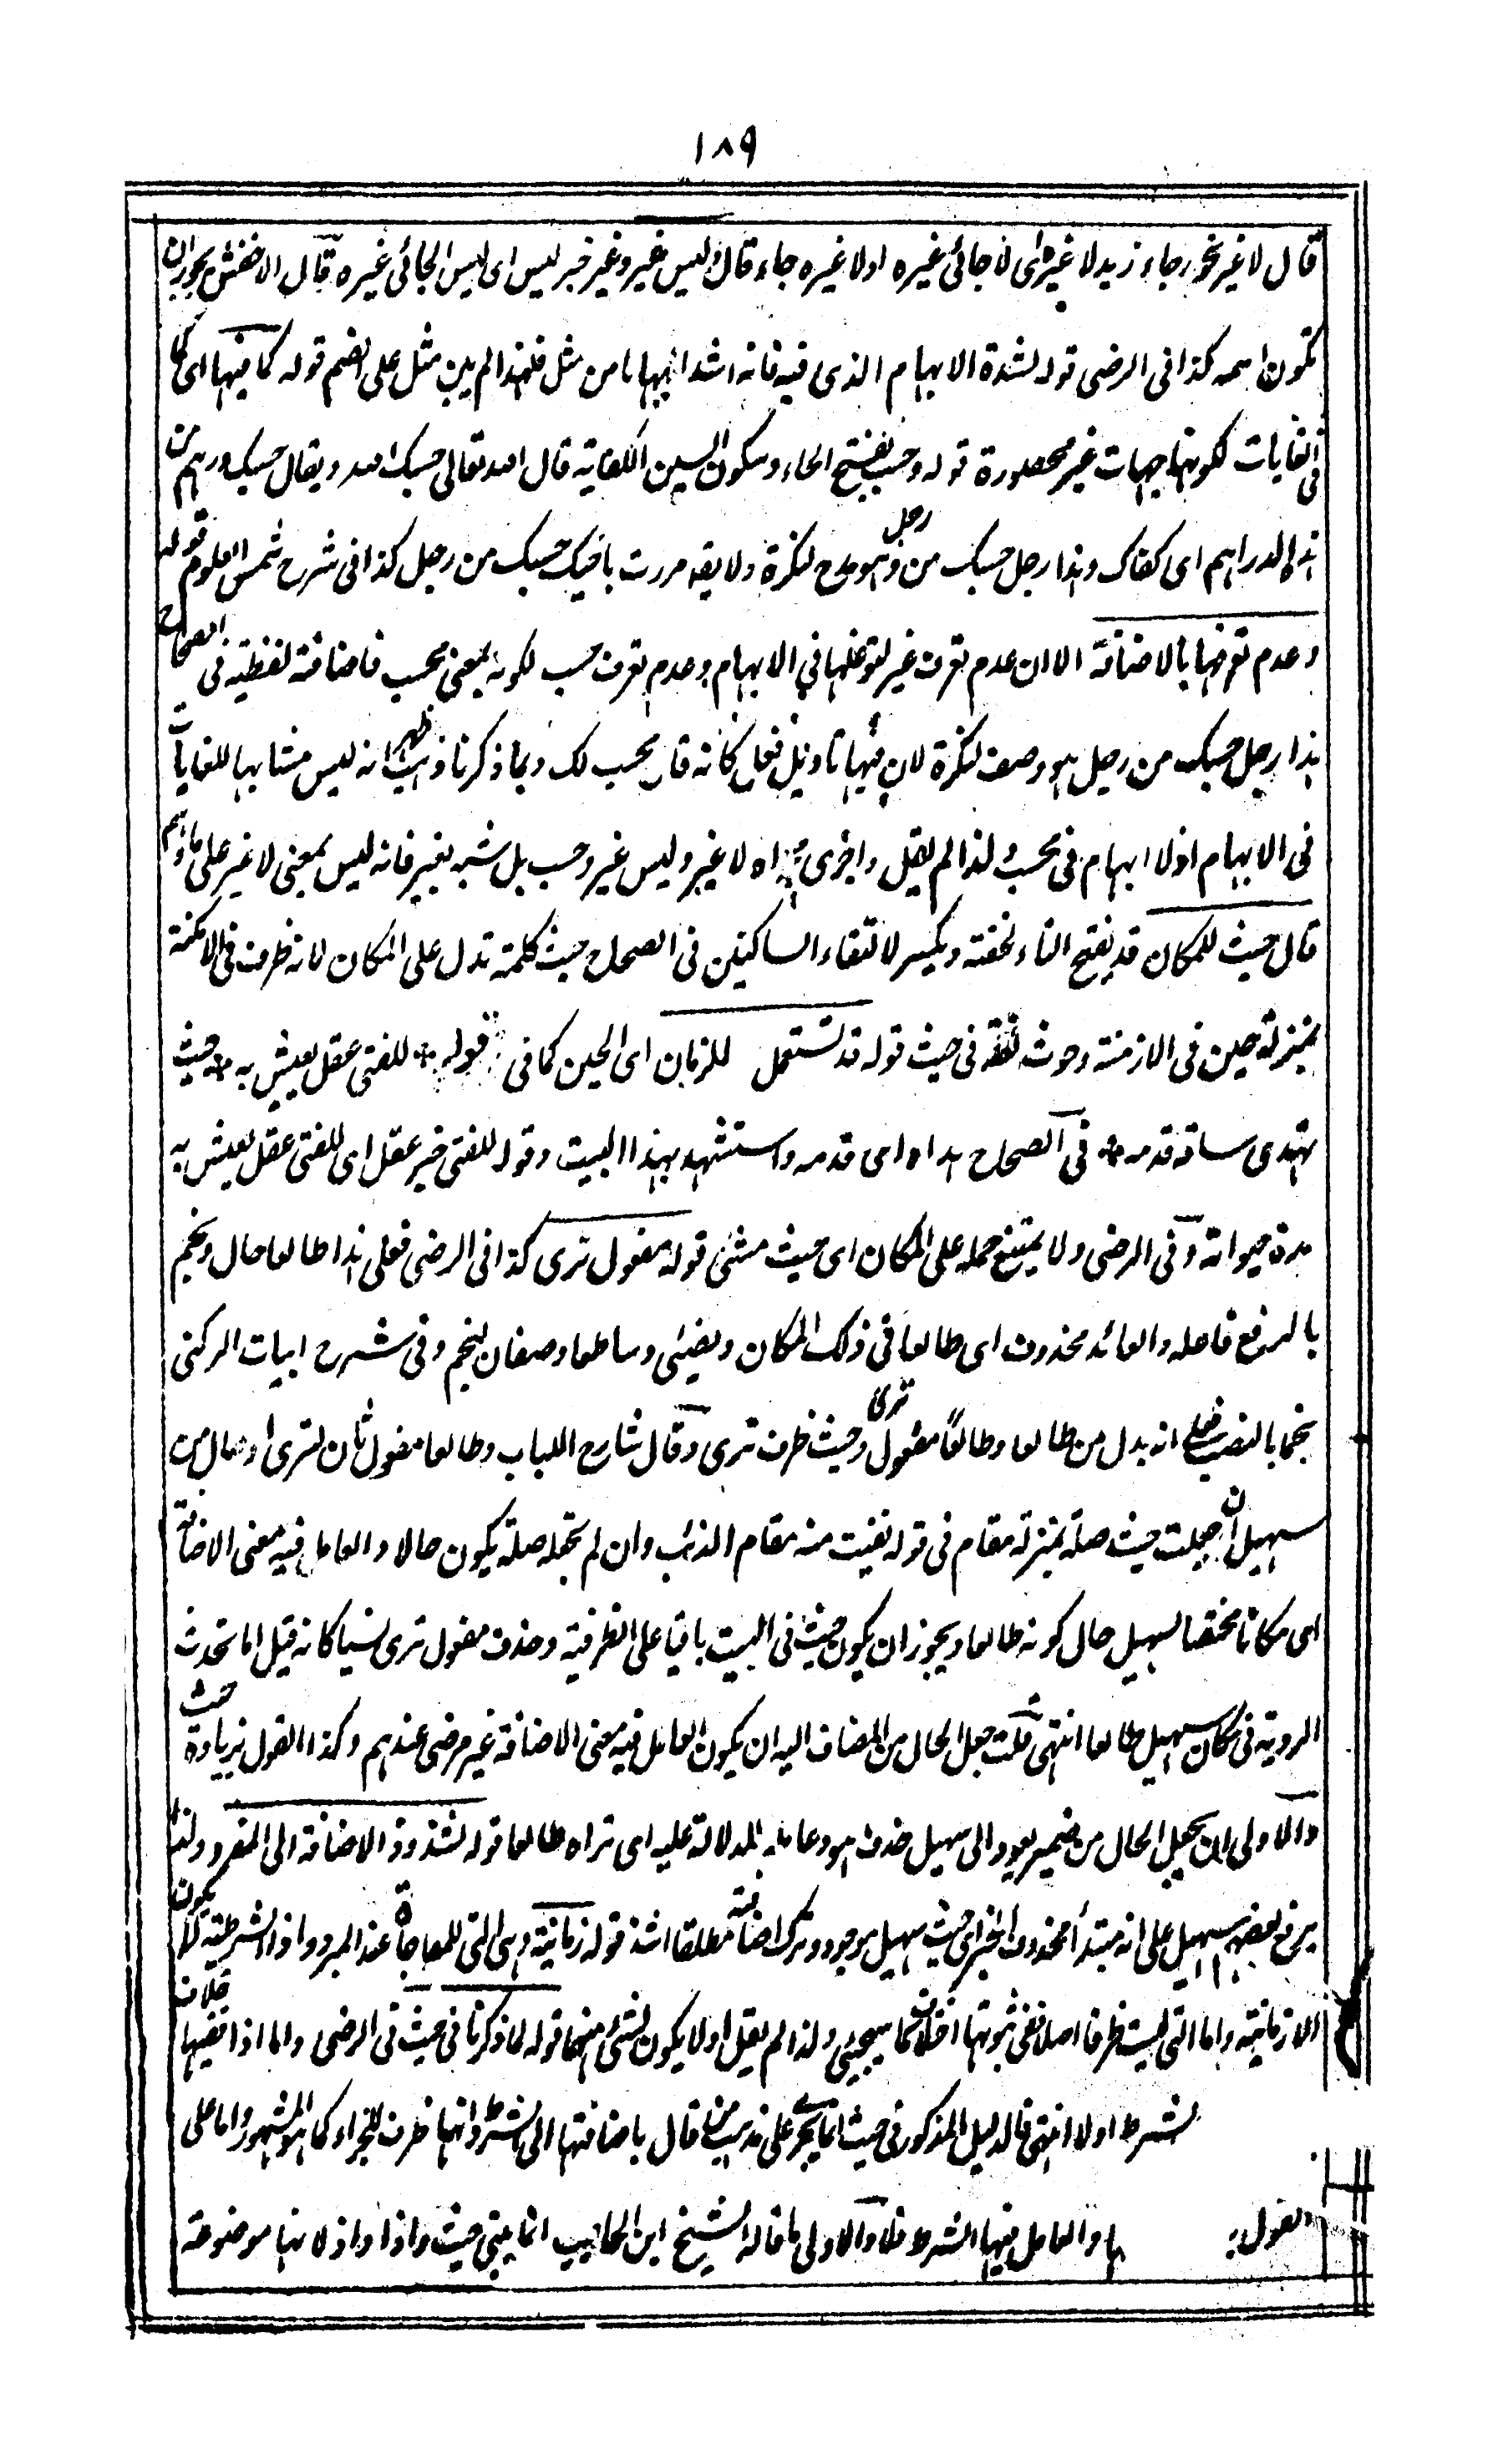 ١٨٩
قال لا غير نحو جاء زيد لا غيره اى لا جائى غيره او لا غيره جاء قال وليس غير وغير خبر ليس اى ليس الجائى غيره قال الاخفش يجوز ان
تكون اسمه كذا فى الرضى قوله لشدة الابهام الذى فيه فانه اشد ابهاما من مثل فلهذا لم يبن مثل على الضم قوله كما فيها اى كما
فى الغايات لكونها جهات غير محصورة قوله وحسب بفتح الحاء وسكون السين الكفاية قال الله تعالى حسبك الله ويقال حسبك درهم من
هذه الدراهم اى كفاك وهذا رجل حسبك من رجل وهو مدح لنكرة ولا يقه مررت باخيك حسبك من رجل كذا فى شرح شمس العلوم قوله
وعدم تعرفها بالاضافة الا ان عدم تعرف غير لتوغلها فى الابهام وعدم تعرف حسب لكونه بمعنى محسب فاضافته لفظية فى الصحاح
هذا رجل حسبك من رجل هو وصف لنكرة لان فيها تاويل فعل كانه قال محسب لك وبما ذكرنا ظهر انه ليس مشابها للغايات
فى الابهام اذ لا ابهام فى محسب ولذا لم يقل واجرى مجراه لا غير وليس غير وحسب بل شبه بغير فانه ليس بمعنى لا غير على ما وهم
قال حيث للمكان قد يفتح الثاء لخفته ويكسر لالتقاء الساكنين فى الصحاح حيث كلمة تدل على المكان لانه ظرف فى الامكنة
بمنزلة حين فى الازمنة وحوث لغة فى حيث قوله قد تستعمل للزمان اى الحين كما فى قوله * للفتى عقل يعيش به * حيث
تهدى ساقه قدمه * فى الصحاح هداه اى قدمه واستشهد بهذا البيت وقوله للفتى خبر عقل اى للفتى عقل يعيش به
مدة حيواته وفى الرضى ولا يمتنع حمله على المكان اى حيث مشى قوله مفعول ترى كذا فى الرضى فعلى هذا طالعا حال ونجم
بالرفع فاعله والعائد محذوف اى طالعا فى ذلك المكان ويضئى وساطعا وصفان لنجم وفى شرح ابيات الركنى
نجما بالنصب على انه بدل من طالعا وطالعاً مفعول ترى وحيث ظرف ترى وقال شارح اللباب وطالعا مفعول ثان لترى او حال من
سهيل ان جعلت حيث صلة بمنزلة مقام فى قوله نفيت منه مقام الذئب وان لم تجعله صلة يكون حالا والعامل فيه معنى الاضافة
اى مكانا مختصا لسهيل حال كونه طالعا ويجوز ان يكون حيث فى البيت باقيا على الظرفية وحذف مفعول ترى نسيا كانه قيل اما تحدث
الروية فى مكان سهيل طالعا انتهى قلت جعل الحال من المضاف اليه ان يكون العامل فيه معنى الاضافة غير مرضى عندهم وكذا القول بزيادة حيث
والاولى ان يجعل الحال من ضمير يعود الى سهيل حذف هو وعامله للدلالة عليه اى تراه طالعا قوله لشذوذ الاضافة الى المفرد ولذا
يرفع بعضهم سهيل على انه مبتدأ محذوف الخبر اى حيث سهيل موجود وترك اضافته مطلقا اشذ قوله زمانية وهى التى للمفاجاة عند المبرد واذا الشرطية لا يكون
الا زمانية واما التى ليست ظرفا اصلا ففى ثبوتها اختلاف كما سيجئى ولذا لم يقل او لا يكون لشئ منهما قوله لما ذكرنا فى حيث فى الرضى واما اذا ففيها خلاف
شرط اولا انتهى فالدليل المذكور فى حيث انما يجرى على مذهب من قال باضافتها الى الشرط وانها ظرف للجزاء كما هو المشهور واما على
القول ها والعامل فيها الشرط فلا والاولى ما قاله الشيخ ابن الحاجب انما بنى حيث واذا واذ لانها موضوعة